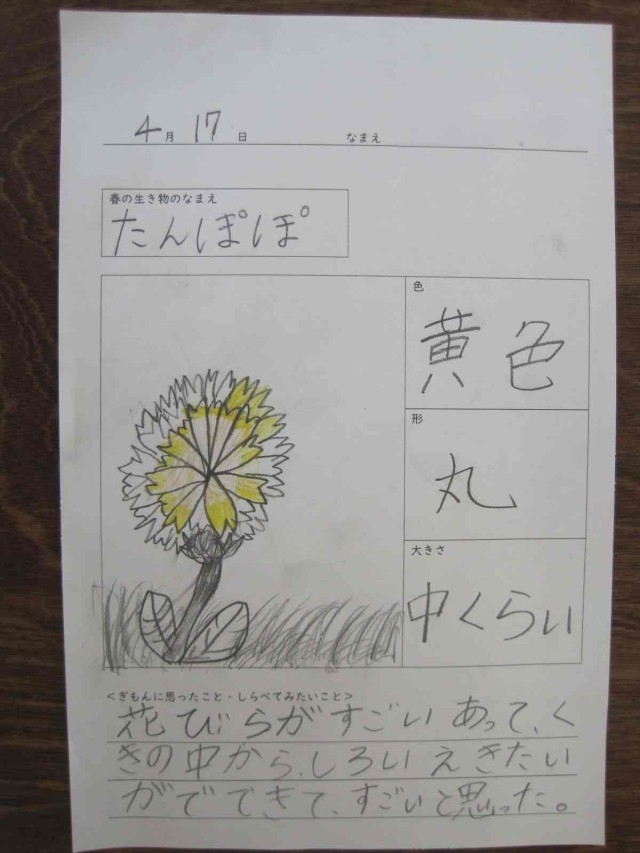 4月17日 なまえ
春の生き物のなまえ
たんぽぽ
色
黄色
形
丸
大きさ
中くらい
<ぎもんに思ったこと・しらべてみたいこと>
花びらがすごいあって、く
きの中から、しろいえきたい
がでできて、すごいと思った。